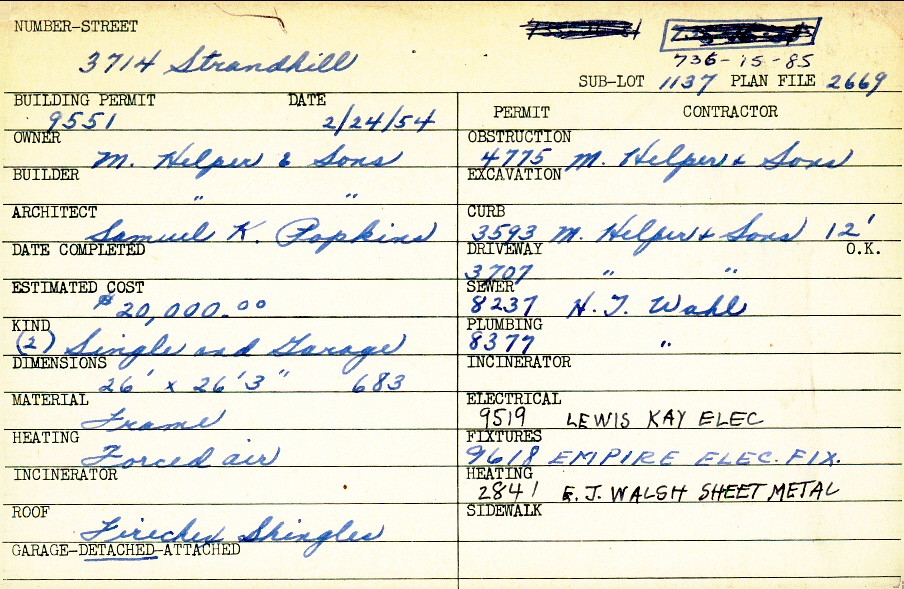 NUMBER-STREET
3714 Strandhill
736-15-85
SUB-LOT 1137 PLAN FILE 2669
BUILDING PERMIT DATE
9551 2/24/54
OWNER
M. Helper & Sons
BUILDER
" "
ARCHITECT
Samuel K. Popkins
DATE COMPLETED
ESTIMATED COST
$20,000.00
KIND
(2) Single and Garage
DIMENSIONS
26' x 26'3" 683
MATERIAL
Frame
HEATING
Forced air
INCINERATOR
ROOF
Firechex Shingles
GARAGE-DETACHED-ATTACHED
PERMIT CONTRACTOR
OBSTRUCTION
4775 M. Helper & Sons
EXCAVATION
CURB
3593 M. Helper & Sons 12'
DRIVEWAY O.K.
3707 " "
SEWER
8237 H. J. Wahl
PLUMBING
8377 "
INCINERATOR
ELECTRICAL
9519 LEWIS KAY ELEC
FIXTURES
9618 EMPIRE ELEC. FIX.
HEATING
2841 E. J. WALSH SHEET METAL
SIDEWALK